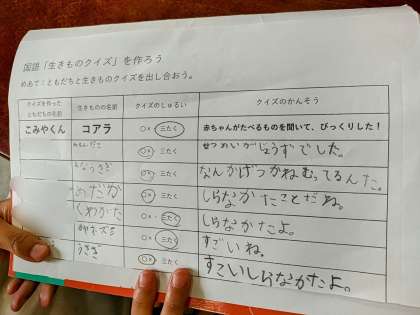 国語「生きものクイズ」を作ろう
めあて：ともだちと生きものクイズを出し合おう。
クイズを作った ともだちの名前 生きものの名前 クイズのしゅるい クイズのかんそう
こみやくん コアラ ○× 三たく 赤ちゃんがたべるものを聞いて、びっくりした！
○× 三たく せつめいがじょうずでした。
うさぎ ○× 三たく なんかげつかねむってるんだ。
めだか ○× 三たく しらなかたことだね。
くわがた ○× 三たく しらなかたよ。
○× 三たく すごいね。
うさぎ ○× 三たく すごいしらなかたよ。